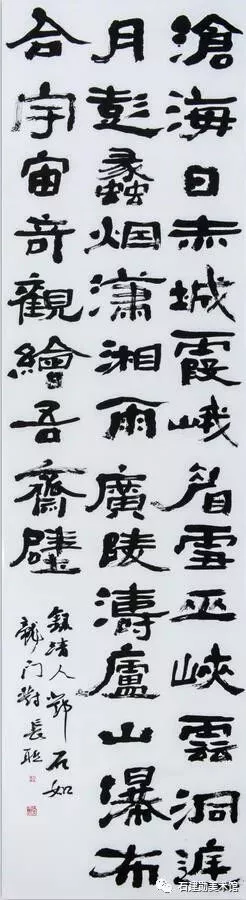 滄海日赤城霞峨眉雪巫峽雲洞庭
月彭蠡烟瀟湘雨廣陵濤廬山瀑布
合宇宙奇觀繪吾齋壁
錄清人鄧石如
龍门對長联
石建勋美术馆